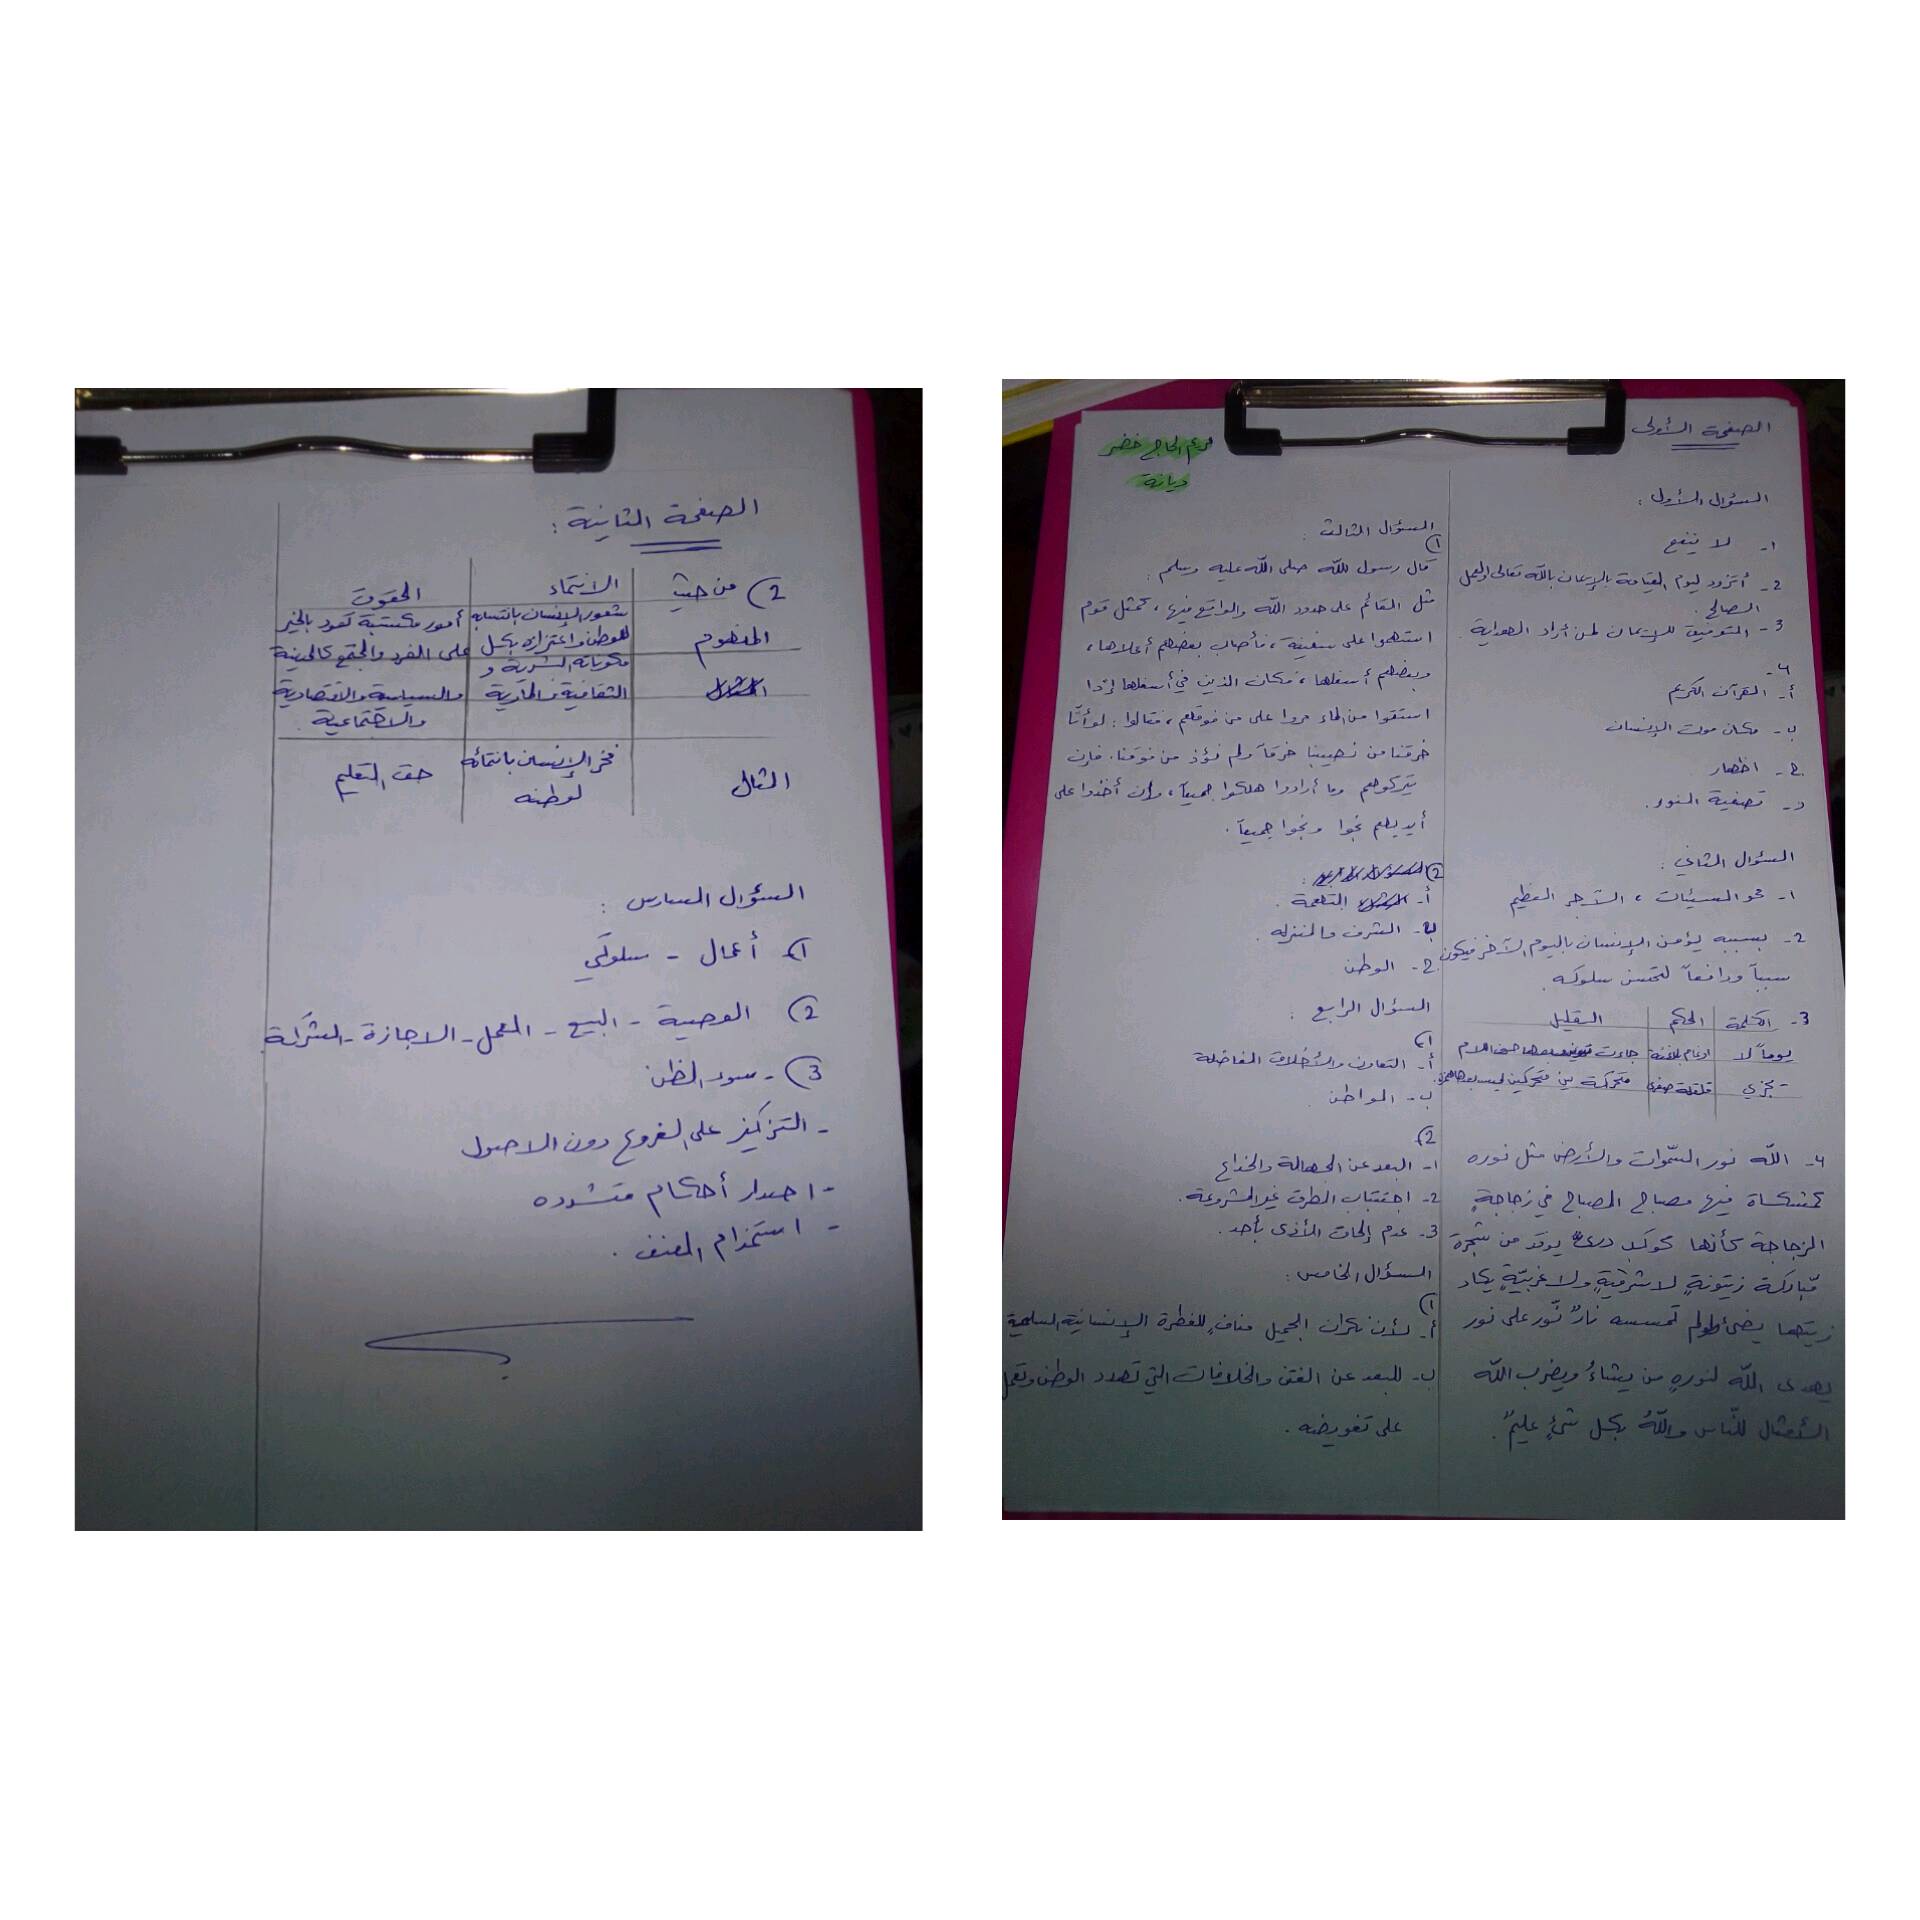 الصفحة الأولى
مريم الحاج خضر
ديانة
السؤال الأول :
1- لا ينفع
2- أتزود ليوم القيامة بالإيمان بالله تعالى والعمل
الصالح .
3- التوفيق للإيمان لمن أراد الهداية .
4-
أ- القرآن الكريم
ب- مكان موت الإنسان
ج- اظهار
د- تصفية النور .
السؤال الثاني :
1- محو السيئات ، الأجر العظيم
2- بسببه يؤمن الإنسان باليوم الآخر فيكون
سبباً ودافعاً لتحسن سلوكه .
3- الكلمة الحكم التعليل
يوماً لا ادغام بلاغنة جاءت بعدها حرف اللام
تجزي قلقلة صغرى متحركة بين متحركين ليس بعدها
4- الله نور السّموات والأرض مثل نوره
كمشكاة فيها مصباح المصباح في زجاجةٍ
الزجاجة كأنها كوكب دريٌّ يوقد من شجرة
مّباركة زيتونةٍ لا شرقيّةٍ ولا غربيّةٍ يكاد
زيتها يضئ ولو لم تمسسه نارٌ نّور على نور
يهدى الله لنورهِ من يشاءُ ويضرب الله
الأمثال للنّاس واللّهُ بكل شئٍ عليمٌ .
السؤال الثالث :
1)
قال رسول الله صلى الله عليه وسلم :
مثل القائم على حدود الله والواقع فيها ، كمثل قوم
استهموا على سفينة ، فأصاب بعضهم أعلاها ،
وبعضهم أسفلها ، فكان الذين في أسفلها إذا
استقوا من الماء مروا على من فوقهم ، فقالوا : لو أنّا
خرقنا من نصيبنا خرقاً ولم نؤذ من فوقنا . فإن
يتركوهم وما أرادوا هلكوا جميعاً ، وإن أخذوا على
أيديهم نجوا ونجوا جميعاً .
2) :
أ- النعمة .
ب- الشرف والمنزله .
ج- الوطن
السؤال الرابع :
1)
أ- التعاون والأخلاق الفاضلة
ب- المواطن .
2)
1- البعد عن الجهالة والخداع
2- اجتناب الطرق غير المشروعة .
3- عدم إلحاق الأذى بأحد .
السؤال الخامس :
1)
أ- لأن نكران الجميل منافٍ للفطرة الإنسانية السليمة
ب- للبعد عن الفتن والخلافات التي تهدد الوطن وتعمل
على تقويضه .
الصفحة الثانية :
2) من حيث الانتماء الحقوق
المفهوم شعور الإنسان بانتسابه أمور مكتسبة تعود بالخير
للوطن واعتزازه بكل على الفرد والمجتمع كالدينية
مكوناته البشرية و
الثقافية والمادية والسياسية والاقتصادية
والاجتماعية .
المثال فخر الإنسان بانتمائه حق التعليم
لوطنه
السؤال السادس :
1) أعمال - سلوكي
2) الوصية - البيع - العمل - الاجازة - الشركة
3) - سوء الظن
- التركيز على الفروع دون الاصول
- اصدار أحكام متشدده
- استخدام العنف .